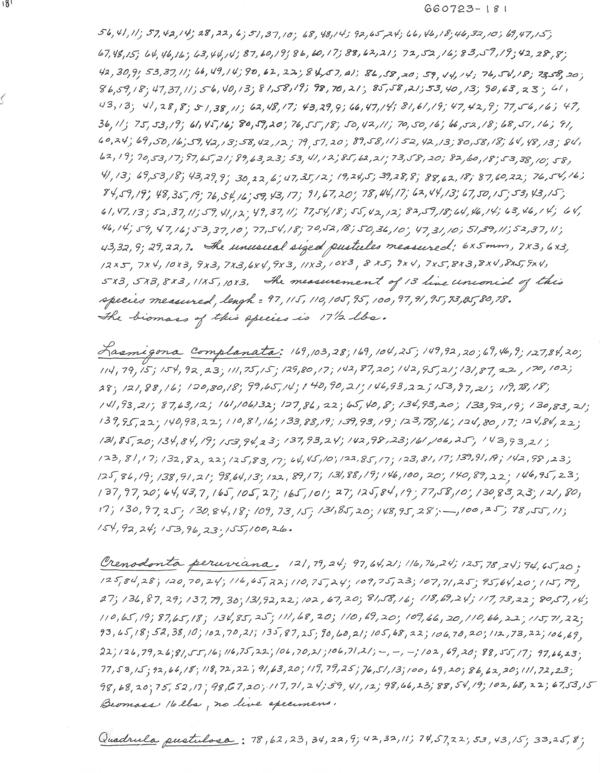 181
660723-181
56,41,11; 57,42,14; 28,22,6; 51,37,10; 68,48,14; 92,65,24; 66,46,18; 46,32,10; 69,47,15;
67,48,15; 64,46,16; 63,44,14; 87,60,19; 86,60,17; 88,62,21; 72,52,16; 83,59,19; 42,28,8;
42,30,9; 53,37,11; 66,49,14; 90,62,22; 84,57,21; 86,58,20; 59,44,14; 76,54,18; 73,58,20;
86,59,18; 47,37,11; 56,40,13; 81,58,19; 98,70,21; 85,58,21; 53,40,13; 90,63,23; 61,
43,13; 41,28,8; 51,38,11; 62,48,17; 43,29,9; 66,47,14; 81,61,19; 47,42,9; 77,56,16; 47,
36,11; 75,53,19; 61,45,16; 80,59,20; 76,55,18; 50,42,11; 70,50,16; 66,52,18; 68,51,16; 91,
60,24; 69,50,16; 59,42,13; 58,42,12; 79,57,20; 89,58,11; 52,42,13; 80,58,18; 64,48,13; 84,
62,19; 70,53,17; 97,65,21; 89,63,23; 53,41,12; 85,62,21; 73,58,20; 82,60,18; 53,38,10; 58,
41,13; 69,53,18; 43,29,9; 30,22,6; 47,35,12; 19,24,5; 39,28,8; 88,62,18; 87,60,22; 76,54,16;
84,59,19; 48,35,19; 76,54,16; 59,43,17; 91,67,20; 78,44,17; 62,44,13; 67,50,15; 53,43,15;
61,47,13; 52,37,11; 59,41,12; 49,37,11; 77,54,18; 55,42,12; 82,59,18; 64,46,14; 63,46,14; 64,
46,14; 59,47,16; 53,37,10; 77,54,18; 70,52,18; 50,36,10; 47,31,10; 51,39,11; 52,37,11;
43,32,9; 29,22,7. The unusual sized pustules measured: 6x5mm, 7x3, 6x3,
12x5, 7x4, 10x3, 9x3, 7x3, 6x4, 9x3, 11x3, 10x3, 8x5, 9x4, 7x5, 8x3, 8x4, 8x5, 9x4,
5x3, 5x3, 8x3, 11x5, 10x3. The measurement of 13 live unionid of this
species measured, lengh = 97,115,110,105,95,100,97,91,95,73,85,80,78.
The biomass of this species is 17½ lbs.
Lasmigona complanata: 169,103,28; 169,104,25; 149,92,20; 69,46,9; 127,84,20;
114,79,15; 154,92,23; 111,75,15; 129,80,17; 142,87,20; 142,95,21; 131,87,22, 170,102;
28; 121,88,16; 120,80,18; 99,65,14; 140,90,21; 146,93,22; 153,97,21; 119,78,18;
141,93,21; 87,63,12; 161,106,32; 127,86,22; 65,40,8; 134,93,20; 133,92,19; 130,83,21;
139,95,22; 140,93,22; 110,81,16; 133,88,19; 139,93,19; 123,78,16; 124,80,17; 124,84,22;
131,85,20; 134,84,19; 153,94,23; 137,93,24; 142,98,23; 161,106,25; 143,93,21;
123,81,17; 132,82,22; 125,83,17; 64,45,10; 122,85,17; 123,81,17; 139,91,19; 142,98,23;
125,86,19; 138,91,21; 98,64,13; 122,89,17; 131,88,19; 146,100,20; 140,89,22; 146,95,23;
137,97,20; 64,43,7, 165,105,27; 165,101,27; 125,84,19; 77,58,10; 130,83,23; 121,80,
17; 130,97,25; 130,84,18; 109,73,15; 131,85,20; 148,95,28; —,100,25; 78,55,11;
154,92,24; 153,96,23; 155,100,26.
Crenodonta peruviana. 121,79,24; 97,64,21; 116,76,24; 125,78,24; 94,65,20;
125,84,28; 120,70,24; 116,65,22; 110,75,24; 109,75,23; 107,71,25; 95,64,20; 115,79,
27; 136,87,29; 137,79,30; 131,92,22; 102,67,20; 81,58,16; 118,69,24; 117,73,22; 80,57,14;
110,65,19; 87,65,18; 134,85,25; 111,68,20; 110,69,20; 109,66,20; 110,66,22; 115,71,22;
93,65,18; 52,38,10; 102,70,21; 135,87,25; 90,60,21; 105,68,22; 106,70,20; 112,73,22; 106,69,
22; 126,79,26; 81,55,16; 116,75,22; 106,70,21; 106,71,21; —,—,—; 102,69,20; 88,55,17; 97,66,23;
77,53,15; 92,66,18; 118,72,22; 91,63,20; 119,79,25; 76,51,13; 100,69,20; 86,62,20; 111,72,23;
98,68,20; 75,52,17; 98,67,20; 117,71,24; 59,41,12; 98,66,23; 88,54,19; 102,68,22; 67,53,15
Biomass 16 lbs, no live specimens.
Quadrula pustulosa: 78,62,23, 34,22,9; 42,32,11; 74,57,22; 53,43,15; 33,25,8;